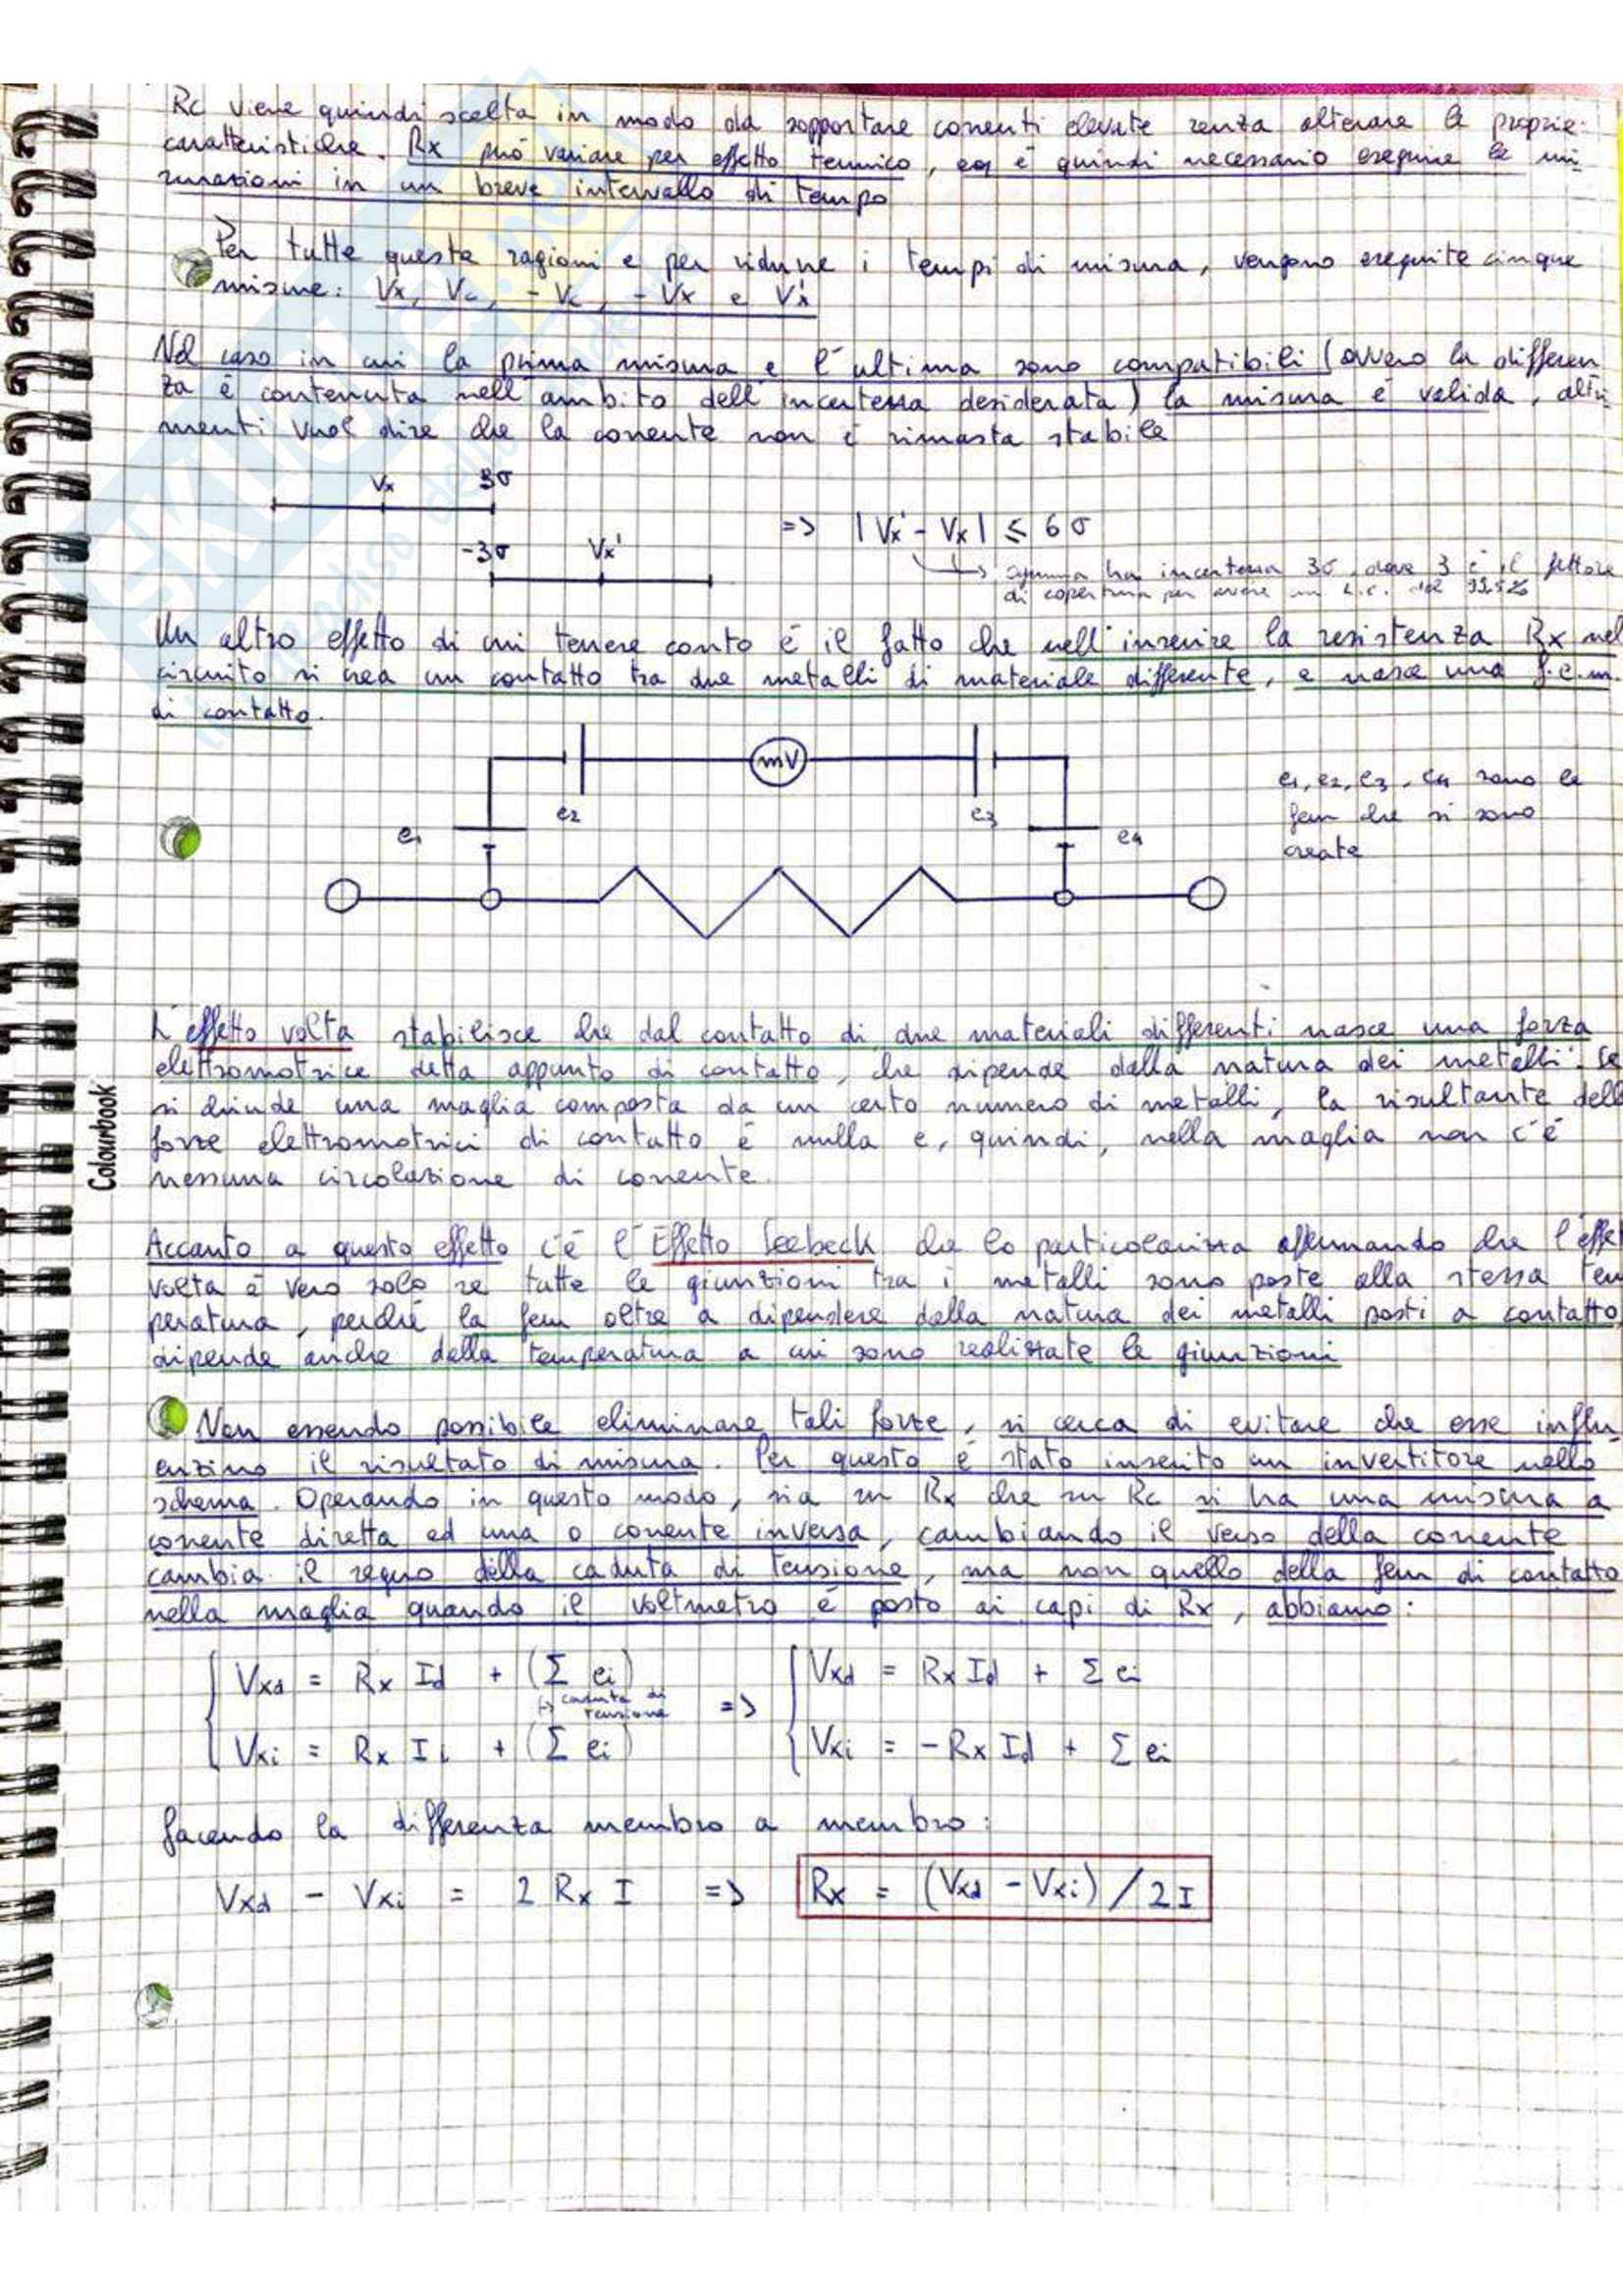 Rc viene quindi scelta in modo da sopportare correnti elevate senza alterare le proprie
caratteristiche. Rx può variare per effetto termico, ed è quindi necessario eseguire le mi-
surazioni in un breve intervallo di tempo
Per tutte queste ragioni e per ridurre i tempi di misura, vengono eseguite cinque
misure: Vx, Vc, -Vc, -Vx e Vx'
Nel caso in cui la prima misura e l'ultima sono compatibili (ovvero la differen
za è contenuta nell'ambito dell'incertezza desiderata) la misura è valida, altri-
menti vuol dire che la corrente non è rimasta stabile
Vx 3σ
-3σ Vx'
=> |Vx' - Vx| ≤ 6σ
ha incertezza 3σ, dove 3 è il fattore
di copertura per avere un L.C. del
Un altro effetto di cui tenere conto è il fatto che nell'inserire la resistenza Rx nel
circuito si crea un contatto tra due metalli di materiale differente, e nasce una f.e.m.
di contatto.
mV
e1 e2 e3 e4
e1, e2, e3, e4 sono le
fem che si sono
create
L'effetto volta stabilisce che dal contatto di due materiali differenti nasce una forza
elettromotrice detta appunto di contatto, che dipende dalla natura dei metalli. Se
si chiude una maglia composta da un certo numero di metalli, la risultante delle
forze elettromotrici di contatto è nulla e, quindi, nella maglia non c'è
nessuna circolazione di corrente.
Accanto a questo effetto c'è l'Effetto Seebeck che lo particolarizza affermando che l'effet
volta è vero solo se tutte le giunzioni tra i metalli sono poste alla stessa tem
peratura, perché la fem oltre a dipendere dalla natura dei metalli posti a contatto,
dipende anche dalla temperatura a cui sono realizzate le giunzioni
Non essendo possibile eliminare tali forze, si cerca di evitare che esse influ-
enzino il risultato di misura. Per questo è stato inserito un invertitore nello
schema. Operando in questo modo, sia su Rx che su Rc si ha una misura a
corrente diretta ed una a corrente inversa, cambiando il verso della corrente
cambia il segno della caduta di tensione, ma non quello della fem di contatto
nella maglia quando il voltmetro è posto ai capi di Rx, abbiamo:
Vxd = Rx Id + (Σ ei) => Vxd = Rx Id + Σ ei
caduta di
tensione
Vxi = Rx Ii + (Σ ei) Vxi = -Rx Id + Σ ei
facendo la differenza membro a membro:
Vxd - Vxi = 2 Rx I => Rx = (Vxd - Vxi) / 2I
Colourbook